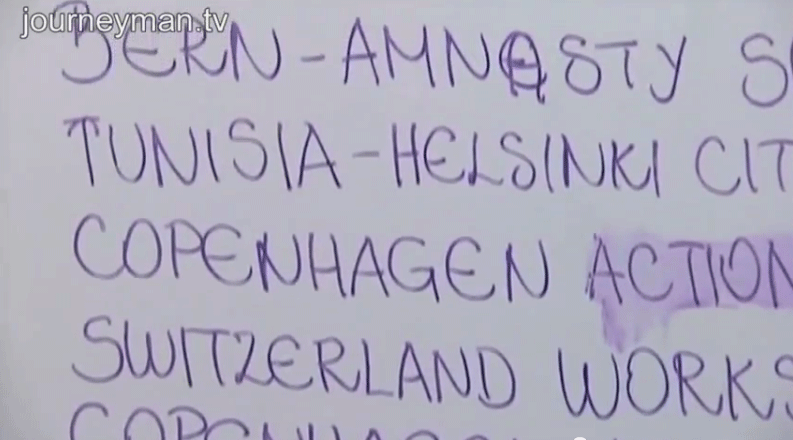 journeyman.tv
BERN - AMNESTY S
TUNISIA - HELSINKI CIT
COPENHAGEN ACTION
SWITZERLAND WORKS
COPENHAG